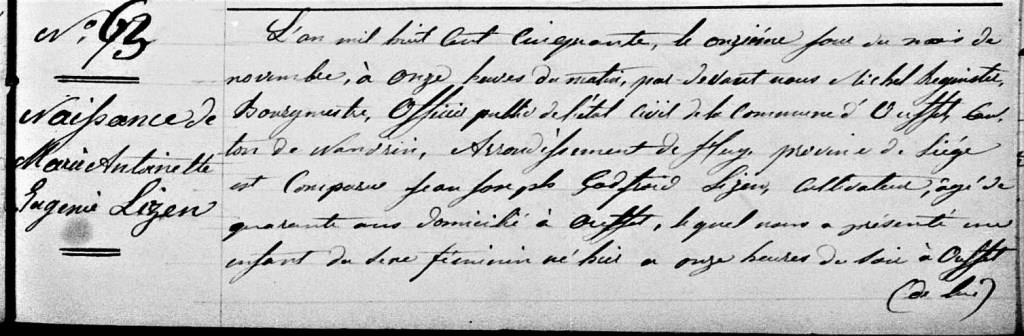 N° 63
Naissance de
Marie Antoinette
Eugenie Lizen
L'an mil huit Cent Cinquante, le onzième jour du mois de
novembre, à onze heures du matin, par-devant nous Michel
Bourgmestre, Officier public de l'état Civil de la Commune d'Ouffet, Can-
ton de Nandrin, Arrondissement de Huy, province de Liége
est Comparu Jean Joseph Godfroid Lizen, Cultivateur, âgé de
quarante ans domicilié à Ouffet, lequel nous a présenté une
enfant du sexe féminin né hier a onze heures du soir à Ouffet
(de lui)